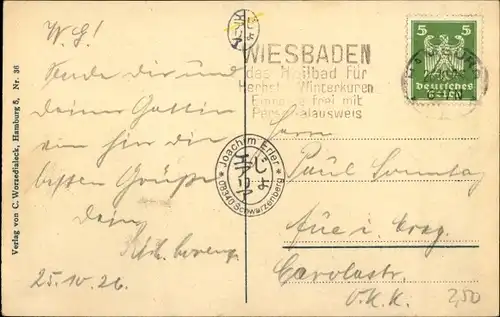 W. G!
Sende dir und
deiner Gattin
die
besten Grüße
dein
25.10.26.
Verlag von C. Worzedialeck, Hamburg 5, Nr. 36
WIESBADEN
das Heilbad für
Herbst- Winterkuren
frei mit
Personalausweis
5 5
Deutsches
Reich
Joachim Erler
08340 Schwarzenberg
Herrn
Paul Sonntag
Aue i. Erzg.
Carolastr.
2,50